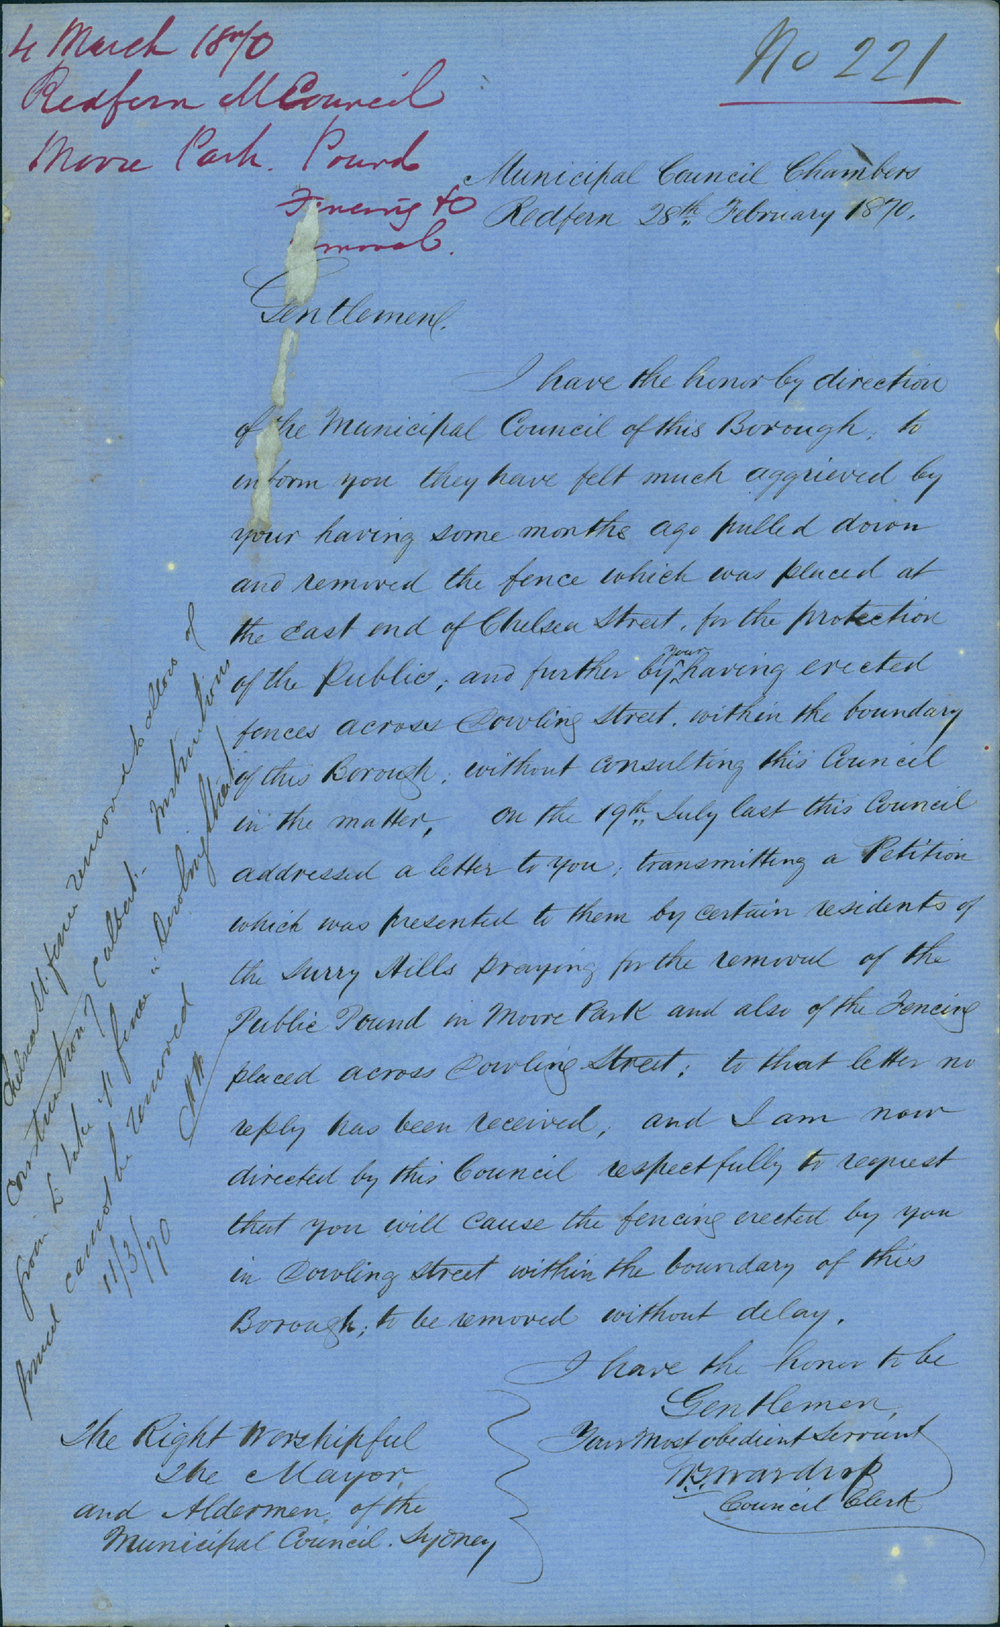 4 March 1870
Redfern M Council
Moore Park. Pound
Fencing to
moval.
No 221
Municipal Council Chambers
Redfern 28th February 1870.
Gentlemen,
I have the honor by direction
of the Municipal Council of this Borough, to
inform you they have felt much aggrieved by
your having some months ago pulled down
and removed the fence which was placed at
the East end of Chelsea Street, for the protection
of the Public; and further by your having erected
fences across Dowling Street, within the boundary
of this Borough; without consulting this Council
in the matter, On the 19th July last this Council
addressed a letter to you; transmitting a Petition
which was presented to them by certain residents of
the Surry Hills praying for the removal of the
Public Pound in Moore Park and also of the Fencing
placed across Dowling Street; to that letter no
reply has been received; and I am now
directed by this Council respectfully to request
that you will cause the fencing erected by you
in Dowling Street within the boundary of this
Borough; to be removed without delay.
I have the honor to be
Gentlemen,
Your Most obedient Servant
Wardrop
Council Clerk
The Right Worshipful
The Mayor
and Aldermen, of the
Municipal Council. Sydney
Chelsea St. fence removed to allow of
construction of Culvert. Instructions
given to take off fence in Dowling Street
pound cannot be removed
11/3/70